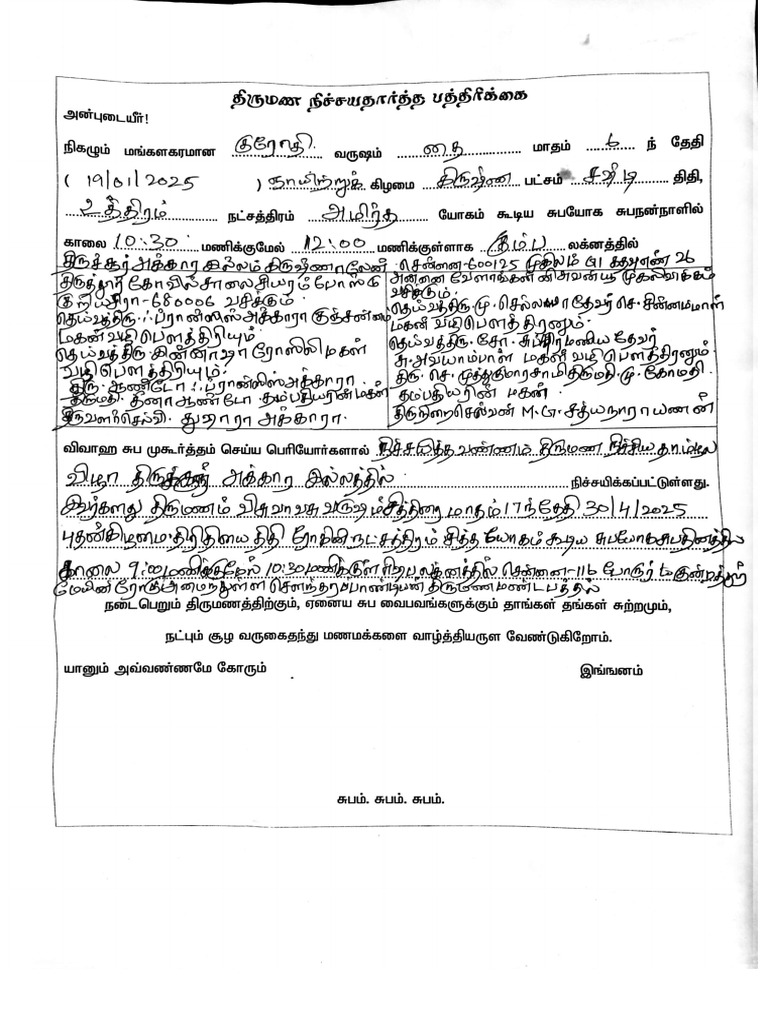 திருமண நிச்சயதார்த்த பத்திரிக்கை
அன்புடையீர்!
நிகழும் மங்களகரமான குரோதி வருஷம் தை மாதம் 6 ந் தேதி
( 19/01/2025 ) ஞாயிற்றுக் கிழமை கிருஷ்ண பட்சம் சஷ்டி திதி,
உத்திரம் நட்சத்திரம் அமிர்த யோகம் கூடிய சுபயோக சுபநன்நாளில்
காலை 10:30 மணிக்குமேல் 12:00 மணிக்குள்ளாக கும்ப லக்னத்தில்
திருச்சூர் அக்கார இல்லம் கிருஷ்ணா லேன்
திருத்தூர் கோவில் சாலை சியாரம் போஸ்ட்
குரியச்சிரா-680006 வசிக்கும்
தெய்வத்திரு. ஃப்ரான்ஸிஸ் அக்காரா குஞ்சன்னம்
மகன் வழி பௌத்திரியும்
தெய்வத்திரு
ரோஸிலி மகள்
வழி பௌத்திரியும்.
திரு. ஆண்டோ ஃப்ரான்ஸிஸ் அக்காரா
திருமதி. தீனா ஆண்டோ தம்பதியரின் மகள்
திருவளர்செல்வி. துஷாரா அக்காரா.
சென்னை-600125 முகலிம் G1 கதவு எண் 26
அன்னை வேளாங்கன்னி அவன்யூ முகலிவாக்கம்
வசிக்கும்.
தெய்வத்திரு. மு. செல்லையா தேவர் செ. சின்னம்மாள்
மகன் வழி பௌத்திரனும்
தெய்வத்திரு. சோ. சுப்பிரமணிய தேவர்
சு. அவ்யாம்பாள் மகள் வழி பௌத்திரனும்
திரு. செ. முத்துகுமாரசாமி திருமதி. மு. கோமதி
தம்பதியரின் மகன்
திருநிறைசெல்வன் M.G. சத்யநாராயணன்
விவாஹ சுப முகூர்த்தம் செய்ய பெரியோர்களால் நிச்சயித்த வண்ணம் திருமண நிச்சியதாம்பூல
விழா திருச்சூர் அக்கார இல்லத்தில் நிச்சயிக்கப்பட்டுள்ளது.
இவர்களது திருமணம் விசுவாவசு வருஷம் சித்திரை மாதம் 17ந்தேதி 30/4/2025
புதன்கிழமை திரிதியை திதி ரோகினி நட்சத்திரம் சித்த யோகம் கூடிய சுபயோக சுபதினத்தில்
காலை 9:00 மணிக்குமேல் 10:30 மணிக்குள் ரிஷப லக்னத்தில் சென்னை-116 போரூர் குன்றத்தூர்
மேயின் ரோடு அமைந்துள்ள சௌந்தரபாண்டியன் திருமண மண்டபத்தில்
நடைபெறும் திருமணத்திற்கும், ஏனைய சுப வைபவங்களுக்கும் தாங்கள் தங்கள் சுற்றமும்,
நட்பும் சூழ வருகைதந்து மணமக்களை வாழ்த்தியருள வேண்டுகிறோம்.
யானும் அவ்வண்ணமே கோரும் இங்ஙனம்
சுபம். சுபம். சுபம்.